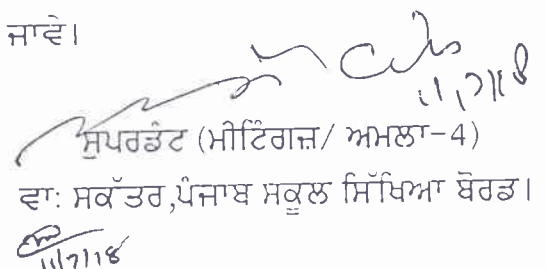 ਜਾਵੇ।
11/7/18
ਸੁਪਰਡੰਟ (ਮੀਟਿੰਗਜ਼/ ਅਮਲਾ-4)
ਵਾ: ਸਕੱਤਰ,ਪੰਜਾਬ ਸਕੂਲ ਸਿੱਖਿਆ ਬੋਰਡ।
11/7/18